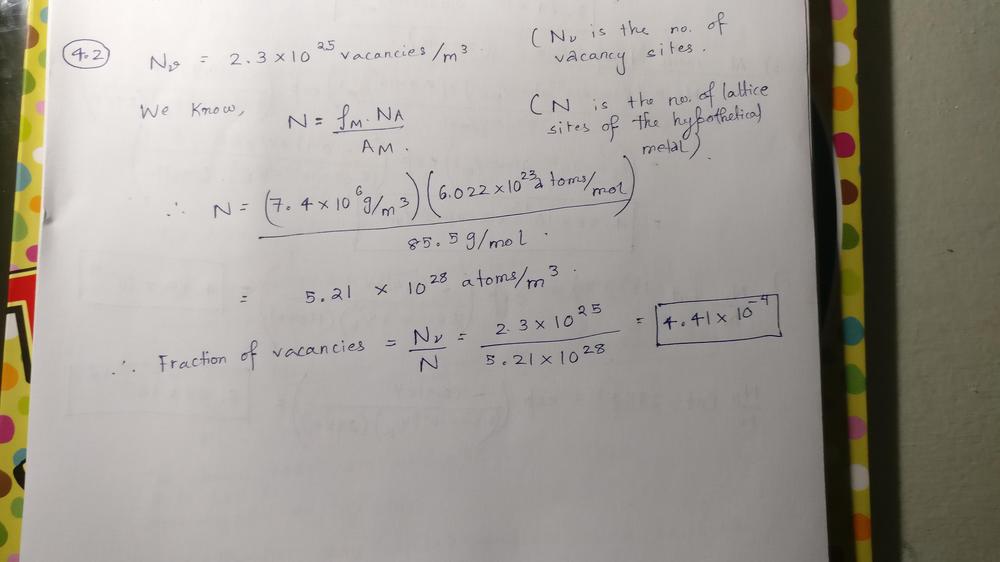 4.2
Nv = 2.3 × 10^25 vacancies/m^3.
(Nv is the no. of
vacancy sites.
We know, N = ρM. NA / AM.
(N is the no. of lattice
sites of the hypothetical
metal).
∴ N = (7.4 × 10^6 g/m^3) (6.022 × 10^23 atoms/mol) / 85.5 g/mol.
= 5.21 × 10^28 atoms/m^3.
∴ Fraction of vacancies = Nv/N = 2.3 × 10^25 / 5.21 × 10^28 = 4.41 × 10^-4